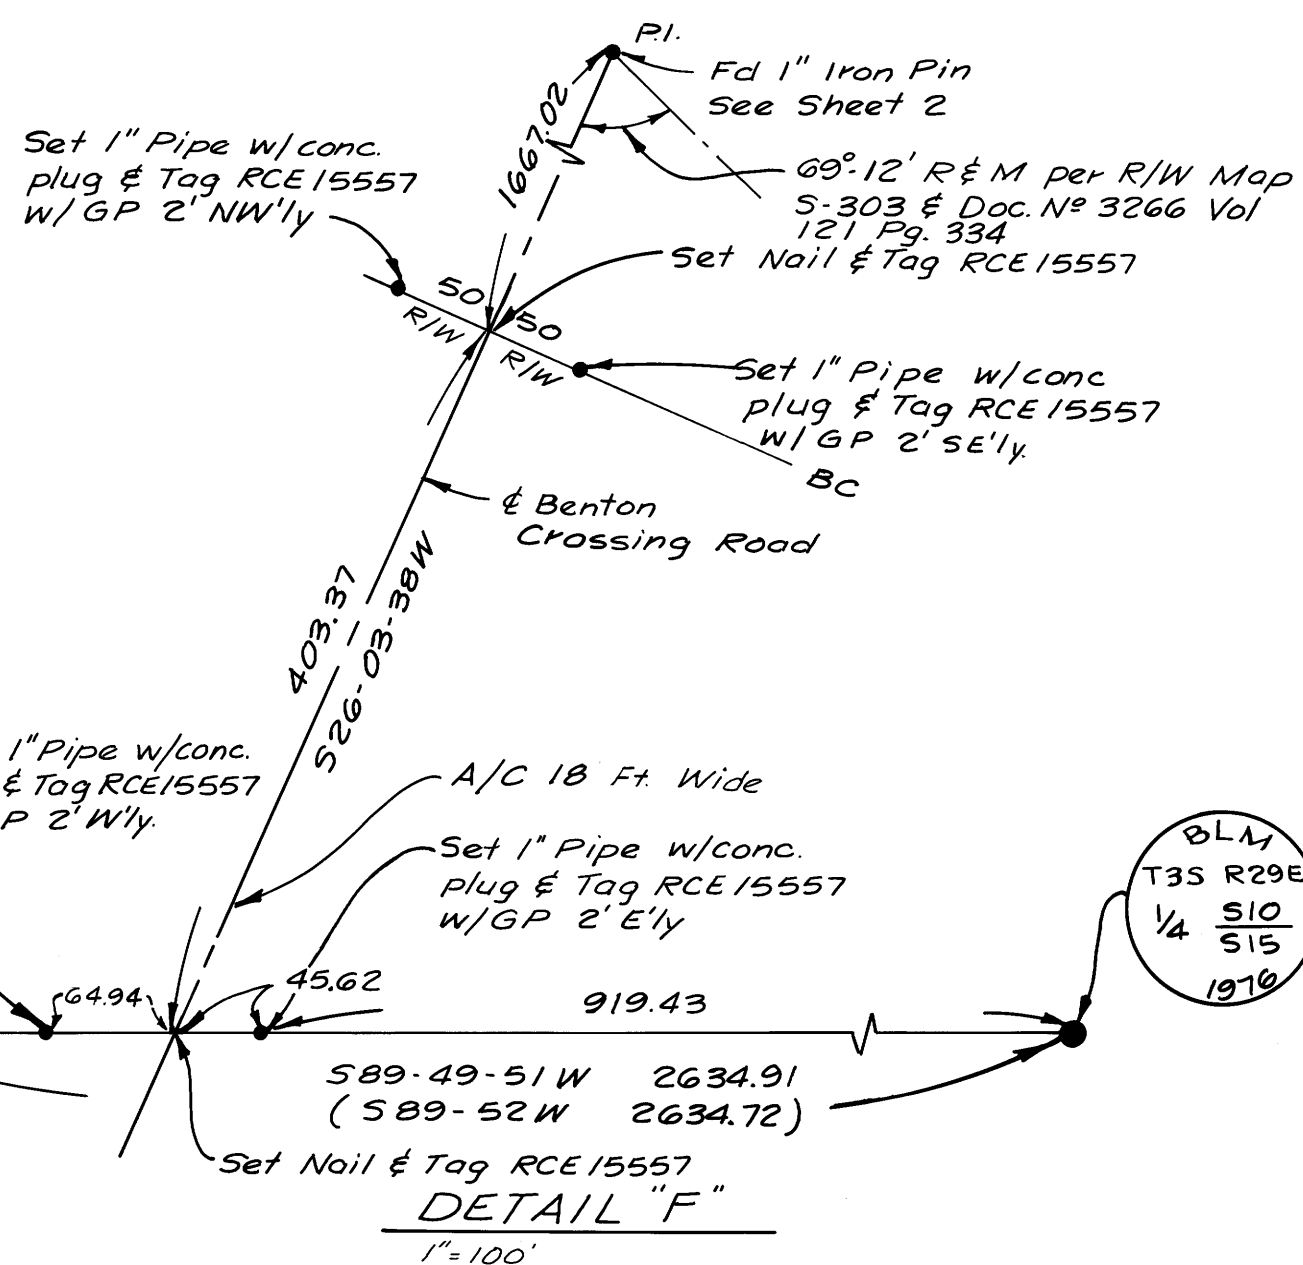 P.I.
Fd 1" Iron Pin
See Sheet 2
1667.02
Set 1" Pipe w/conc.
plug & Tag RCE 15557
w/ GP 2' NW'ly
69°-12' R & M per R/W Map
S-303 & Doc. Nº 3266 Vol
121 Pg. 334
Set Nail & Tag RCE 15557
50
50
R/W
R/W
Set 1" Pipe w/conc
plug & Tag RCE 15557
w/ GP 2' SE'ly.
BC
℄ Benton
Crossing Road
403.37
S26-03-38W
1" Pipe w/conc.
& Tag RCE 15557
P 2' W'ly.
A/C 18 Ft. Wide
Set 1" Pipe w/conc.
plug & Tag RCE 15557
w/GP 2' E'ly
BLM
T3S R29E
1/4 S10
S15
1976
64.94
45.62
919.43
S89-49-51W 2634.91
(S89-52W 2634.72)
Set Nail & Tag RCE 15557
DETAIL "F"
1"=100'